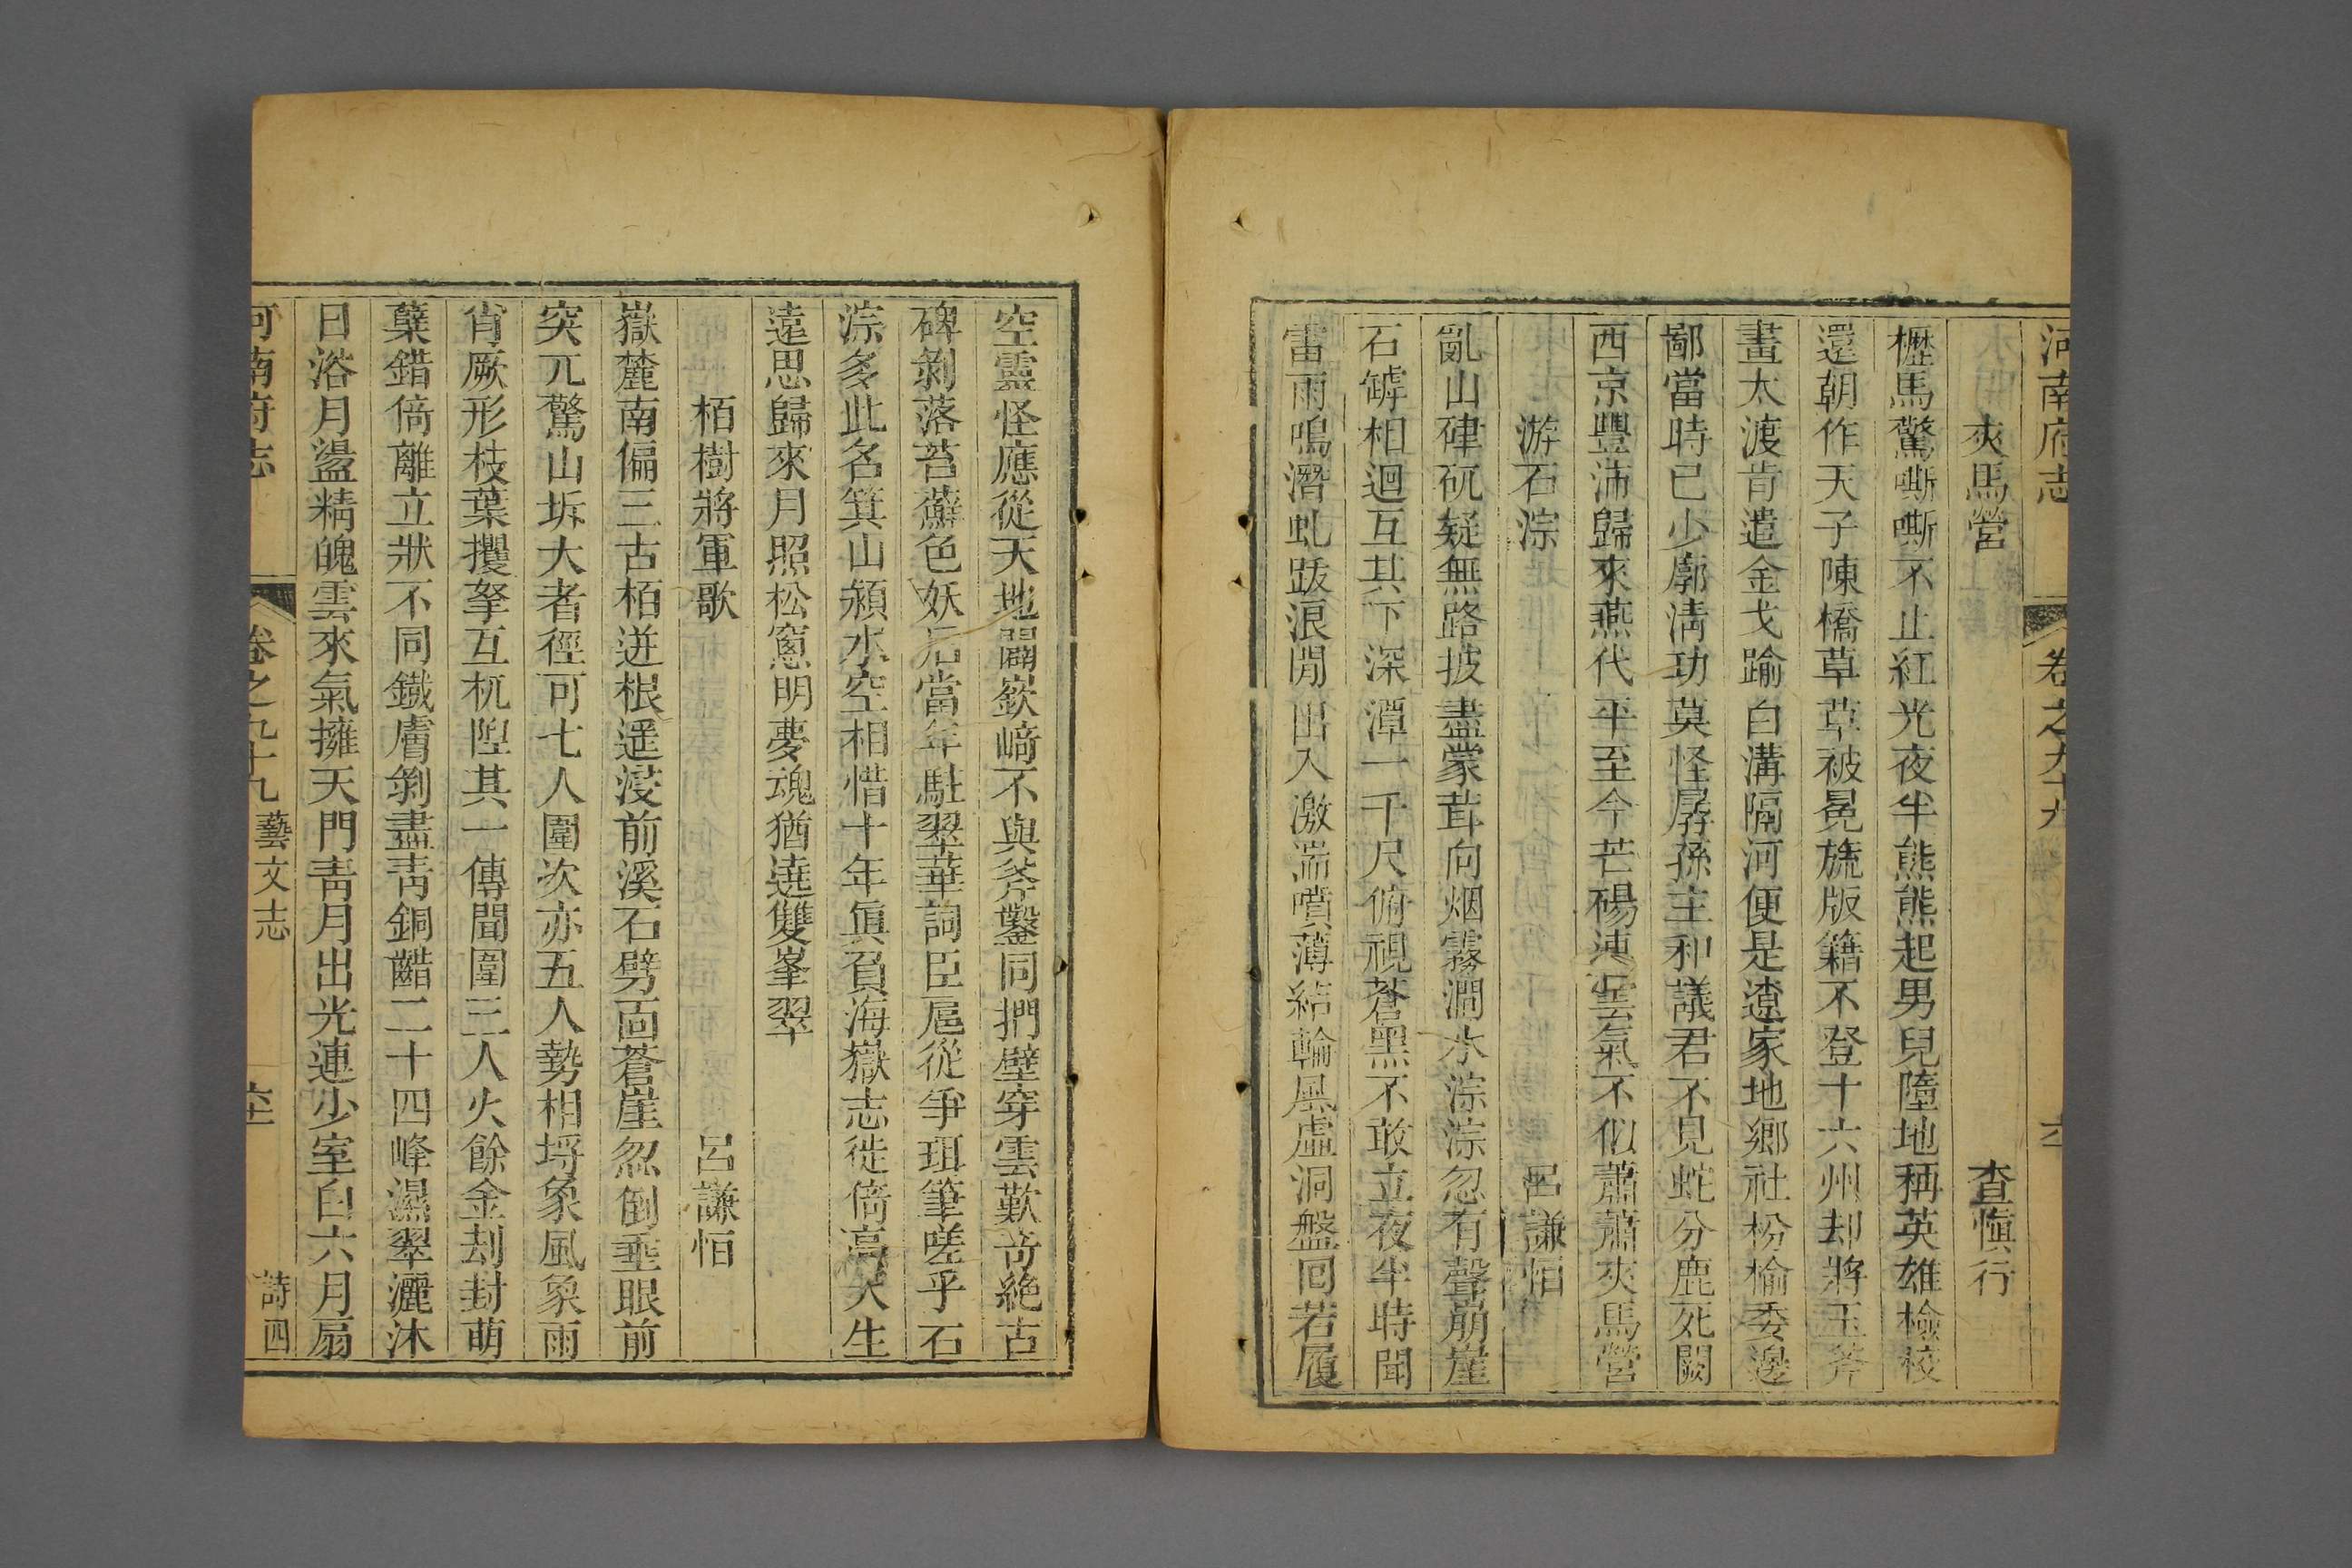 河南府志 卷之九十九
夾馬營 查愼行
櫪馬驚嘶嘶不止紅光夜半熊熊起男兒墮地稱英雄檢校
還朝作天子陳橋草草被冕旒版籍不登十六州却將玉斧
畫大渡肯遣金戈踰白溝隔河便是遼家地鄉社枌榆委邊
鄙當時已少廓淸功莫怪孱孫主和議君不見蛇分鹿死闕
西京豐沛歸來燕代平至今芒碭連雲氣不似蕭蕭夾馬營
游石淙 呂謙恒
亂山硉矹疑無路披盡蒙茸向烟霧澗水淙淙忽有聲崩崖
石罅相迴互其下深潭一千尺俯視蒼黑不敢立夜半時聞
雷雨鳴潛虬跋浪閒出入激湍噴薄結輪風虛洞盤回若履
空靈怪應從天地闢嶔﨑不與斧鑿同捫壁穿雲歎奇絶古
碑剝落苔蘚色妖后當年駐翠華詞臣扈從爭珥筆嗟乎石
淙多此名箕山潁水空相惜十年眞負海嶽志徙倚高大生
遠思歸來月照松窻明夢魂猶遶雙峯翠
栢樹將軍歌 呂謙恒
嶽麓南偏三古栢迸根遥浸前溪石劈面蒼崖忽倒垂眼前
突兀驚山坼大者徑可七人圍次亦五人勢相埒象風象雨
肖厥形枝葉攫拏互杌隉其一傳聞圍三人火餘金刦封萌
蘖錯倚離立狀不同鐵膚剝盡靑銅齰二十四峰濕翠灑沐
日浴月盪精魄雲來氣擁天門靑月出光連少室白六月扇
河南府志 卷之九十九 藝文志 詩四